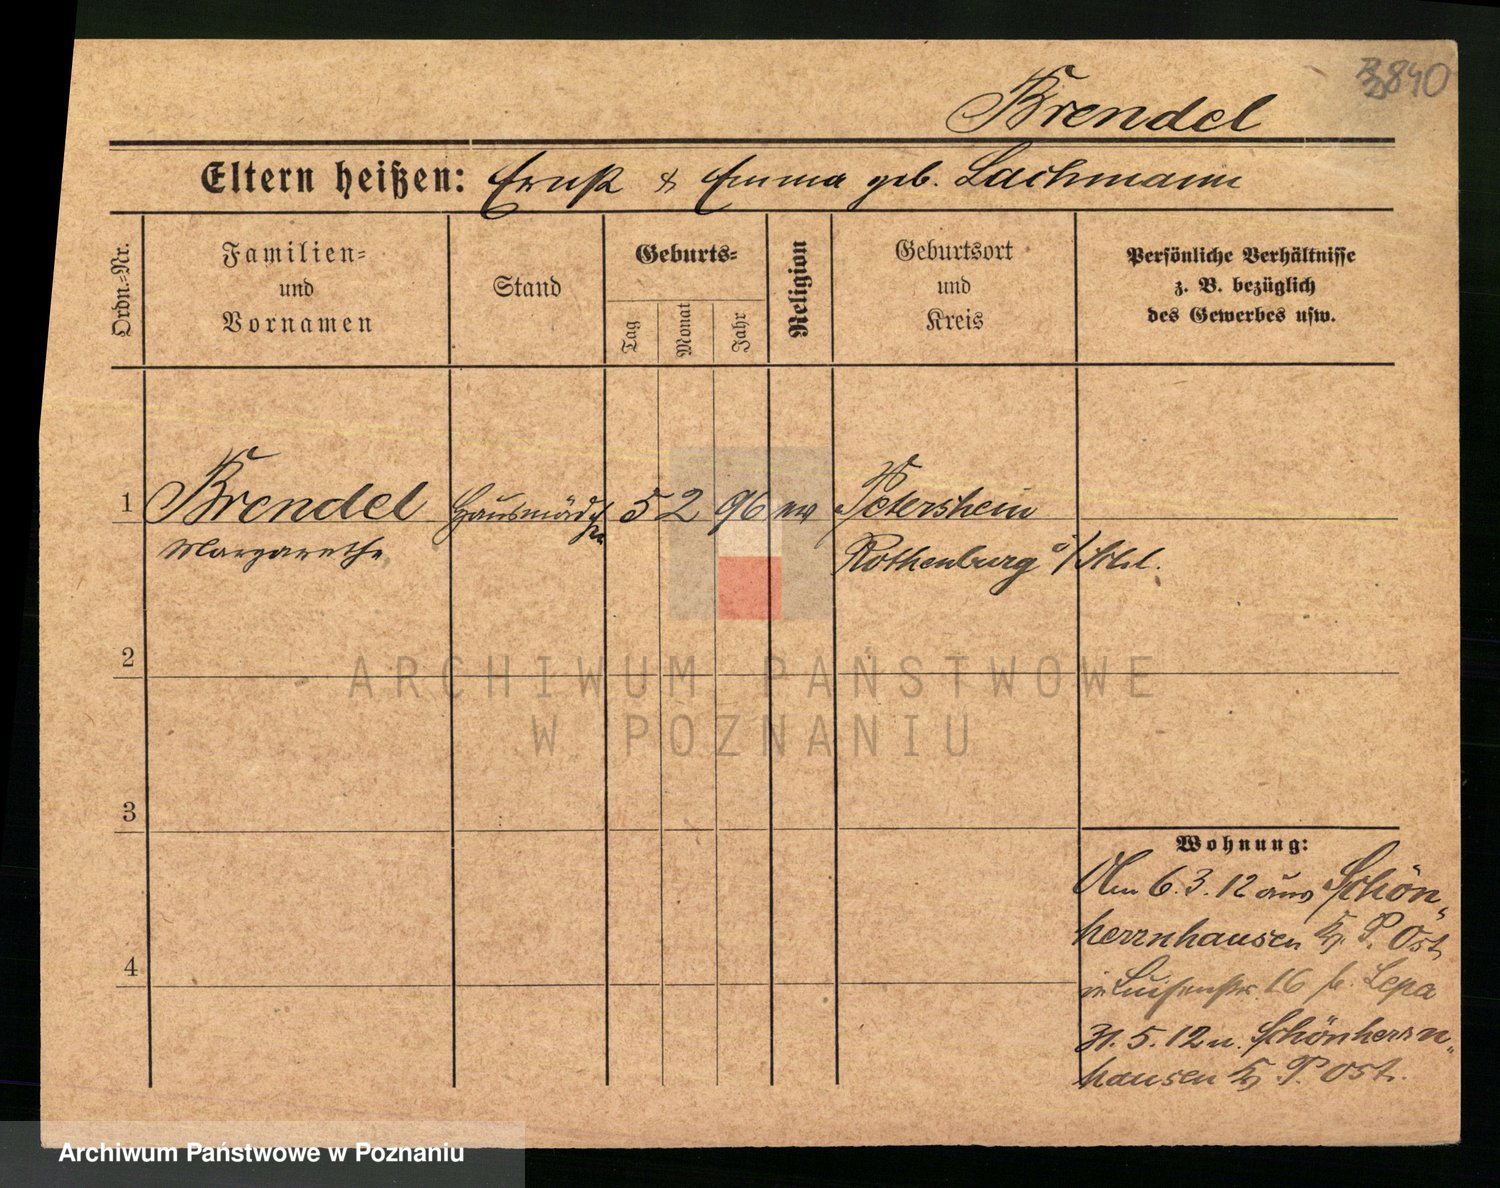 B3840
Brendel
Eltern heißen: Ernst & Emma geb. Lachmann
Ordn.-Nr.
Familien-
und
Vornamen
Stand
Geburts-
Tag
Monat
Jahr
Religion
Geburtsort
und
Kreis
Persönliche Verhältnisse
z. B. bezüglich
des Gewerbes usw.
1 Brendel Hausmädch 5 2 96 ev Petershein
Margarethe chen Rothenburg o/Schl.
2
ARCHIWUM PAŃSTWOWE
W POZNANIU
3
Wohnung:
Am 6.3.12 aus Schön„
herrnhausen Kr. P. Ost
in Luisenstr. 16 b. Lepa
4
31.5.12 n. Schönherrn„
hausen Kr P. Ost.
Archiwum Państwowe w Poznaniu